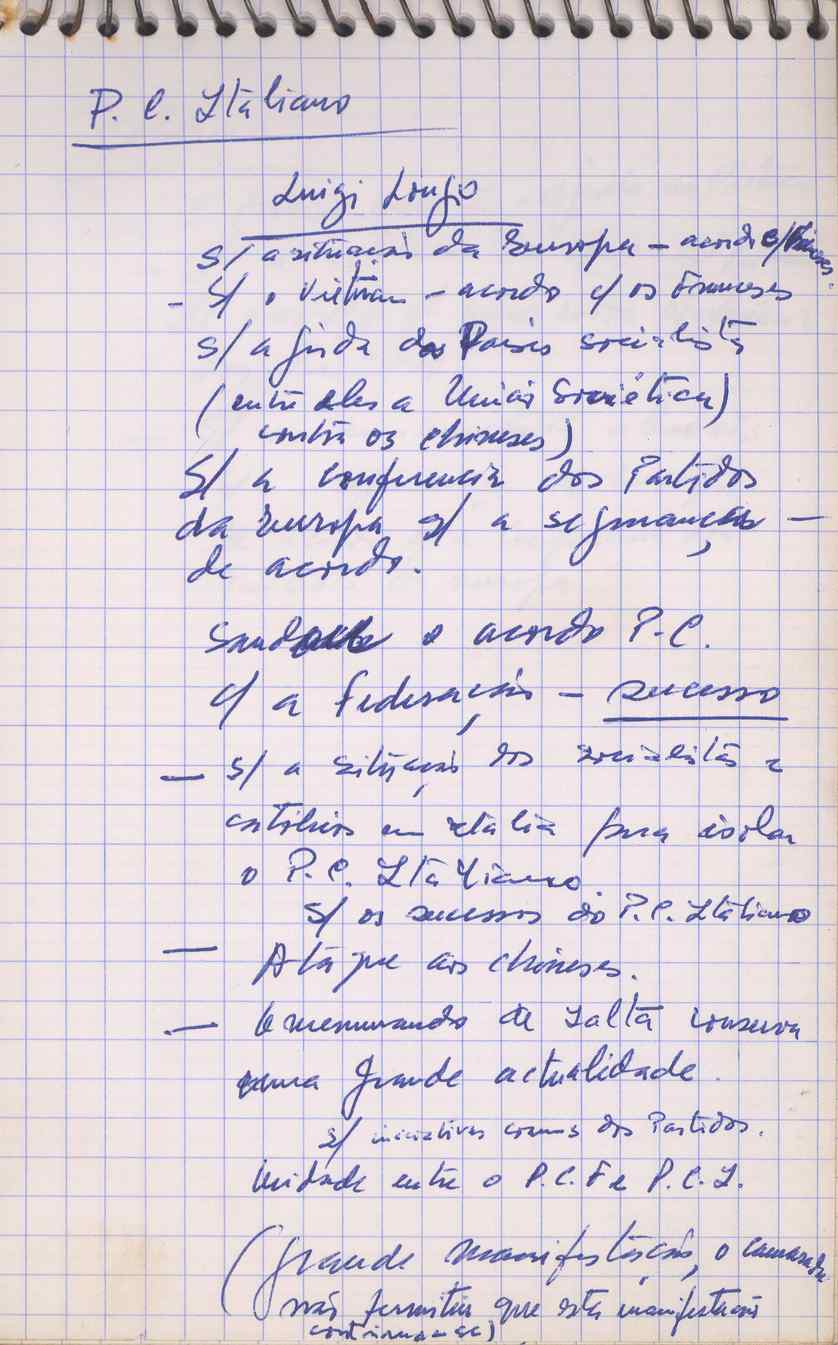 P. C. Italiano
Luigi Longo
S/ a situação da Europa – acordo c/ Franceses.
– S/ o Vietnam – acordo c/ os Franceses
S/ a ajuda dos Países socialistas
(entre eles a União Soviética)
contra os chineses)
S/ a conferencia dos Partidos
da Europa s/ a segurança –
de acordo.
o acordo P.C.
c/ a Federação – sucesso
– S/ a situação dos socialistas e
católicos em Italia para isolar
o P.C. Italiano.
S/ os sucessos do P.C. Italiano
– Ataque aos chineses.
– O memorando de Ialta conserva
uma grande actualidade.
s/ iniciativas comuns dos Partidos.
Unidade entre o P.C.F e P.C.I.
(grande manifestação, o camarada
não permitiu que esta manifestação
continuasse)